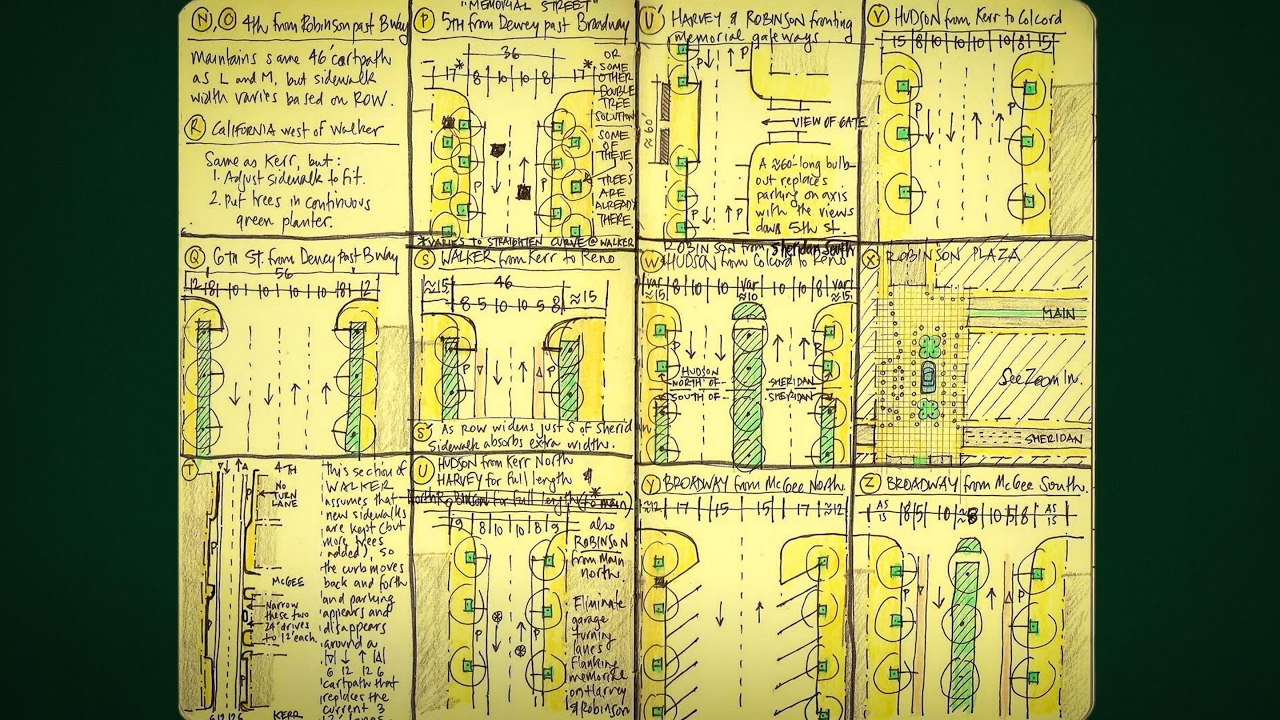 N, O 4th from Robinson past Bway
maintains same 46' cartpath
as L and M, but sidewalk
width varies based on ROW.
R CALIFORNIA west of Walker
Same as Kerr, but:
1. Adjust sidewalk to fit.
2. Put trees in continuous
green planter.
"MEMORIAL STREET"
P 5TH from Dewey past Broadway
36
17* 8 10 10 8 17*
OR
SOME
OTHER
DOUBLE
TREE
SOLUTION
SOME
OF
THESE
TREES
ARE
ALREADY
THERE
P
P
*VARIES TO STRAIGHTEN CURVE @ WALKER
U' HARVEY & ROBINSON fronting
memorial gateways
P P
≈60'
VIEW OF GATE
A ≈60'-long bulb-
out replaces
parking on axis
with the views
down 5th st.
P P
V HUDSON from Kerr to Colcord
15 8 10 10 10 8 15
P
P
Q 6th St. from Dewey past Bway
56
12 8 10 10 10 8 12
S WALKER from Kerr to Reno
≈15 46 ≈15
8 5 10 10 5 8
P
P
S' As ROW widens just S of Sheridan
Sidewalk absorbs extra width.
ROBINSON from Sheridan South
W HUDSON from Colcord to Reno
var ≈15 8 10 10 var ≈10 10 10 8 var ≈15
P
P
HUDSON
NORTH OF SHERIDAN
SOUTH OF SHERIDAN
X ROBINSON PLAZA
MAIN
See Zoom In.
SHERIDAN
T
4TH
NO
TURN
LANE
P
P
MCGEE
Narrow
these two
24' drives
to 12' each.
P
KERR
6 12 12 6
this section of
WALKER
assumes that
new sidewalks
are kept (but
more trees
added), so
the curb moves
back and forth
and parking
appears and
disappears
around a
6 12 12 6
cartpath that
replaces the
current 3
U HUDSON from Kerr North
HARVEY for full length &
North ROBINSON for full length (to main)
19 8 10 10 8 9
P
P
also
ROBINSON
from Main
north.
Eliminate
garage
turning
lanes
flanking
memorial
on Harvey
& Robinson
Y BROADWAY from McGee North.
≈12 17 15 15 17 ≈12
Z BROADWAY from McGee South.
AS IS 8 5 10 ≈8 10 5 8 AS IS
P
P